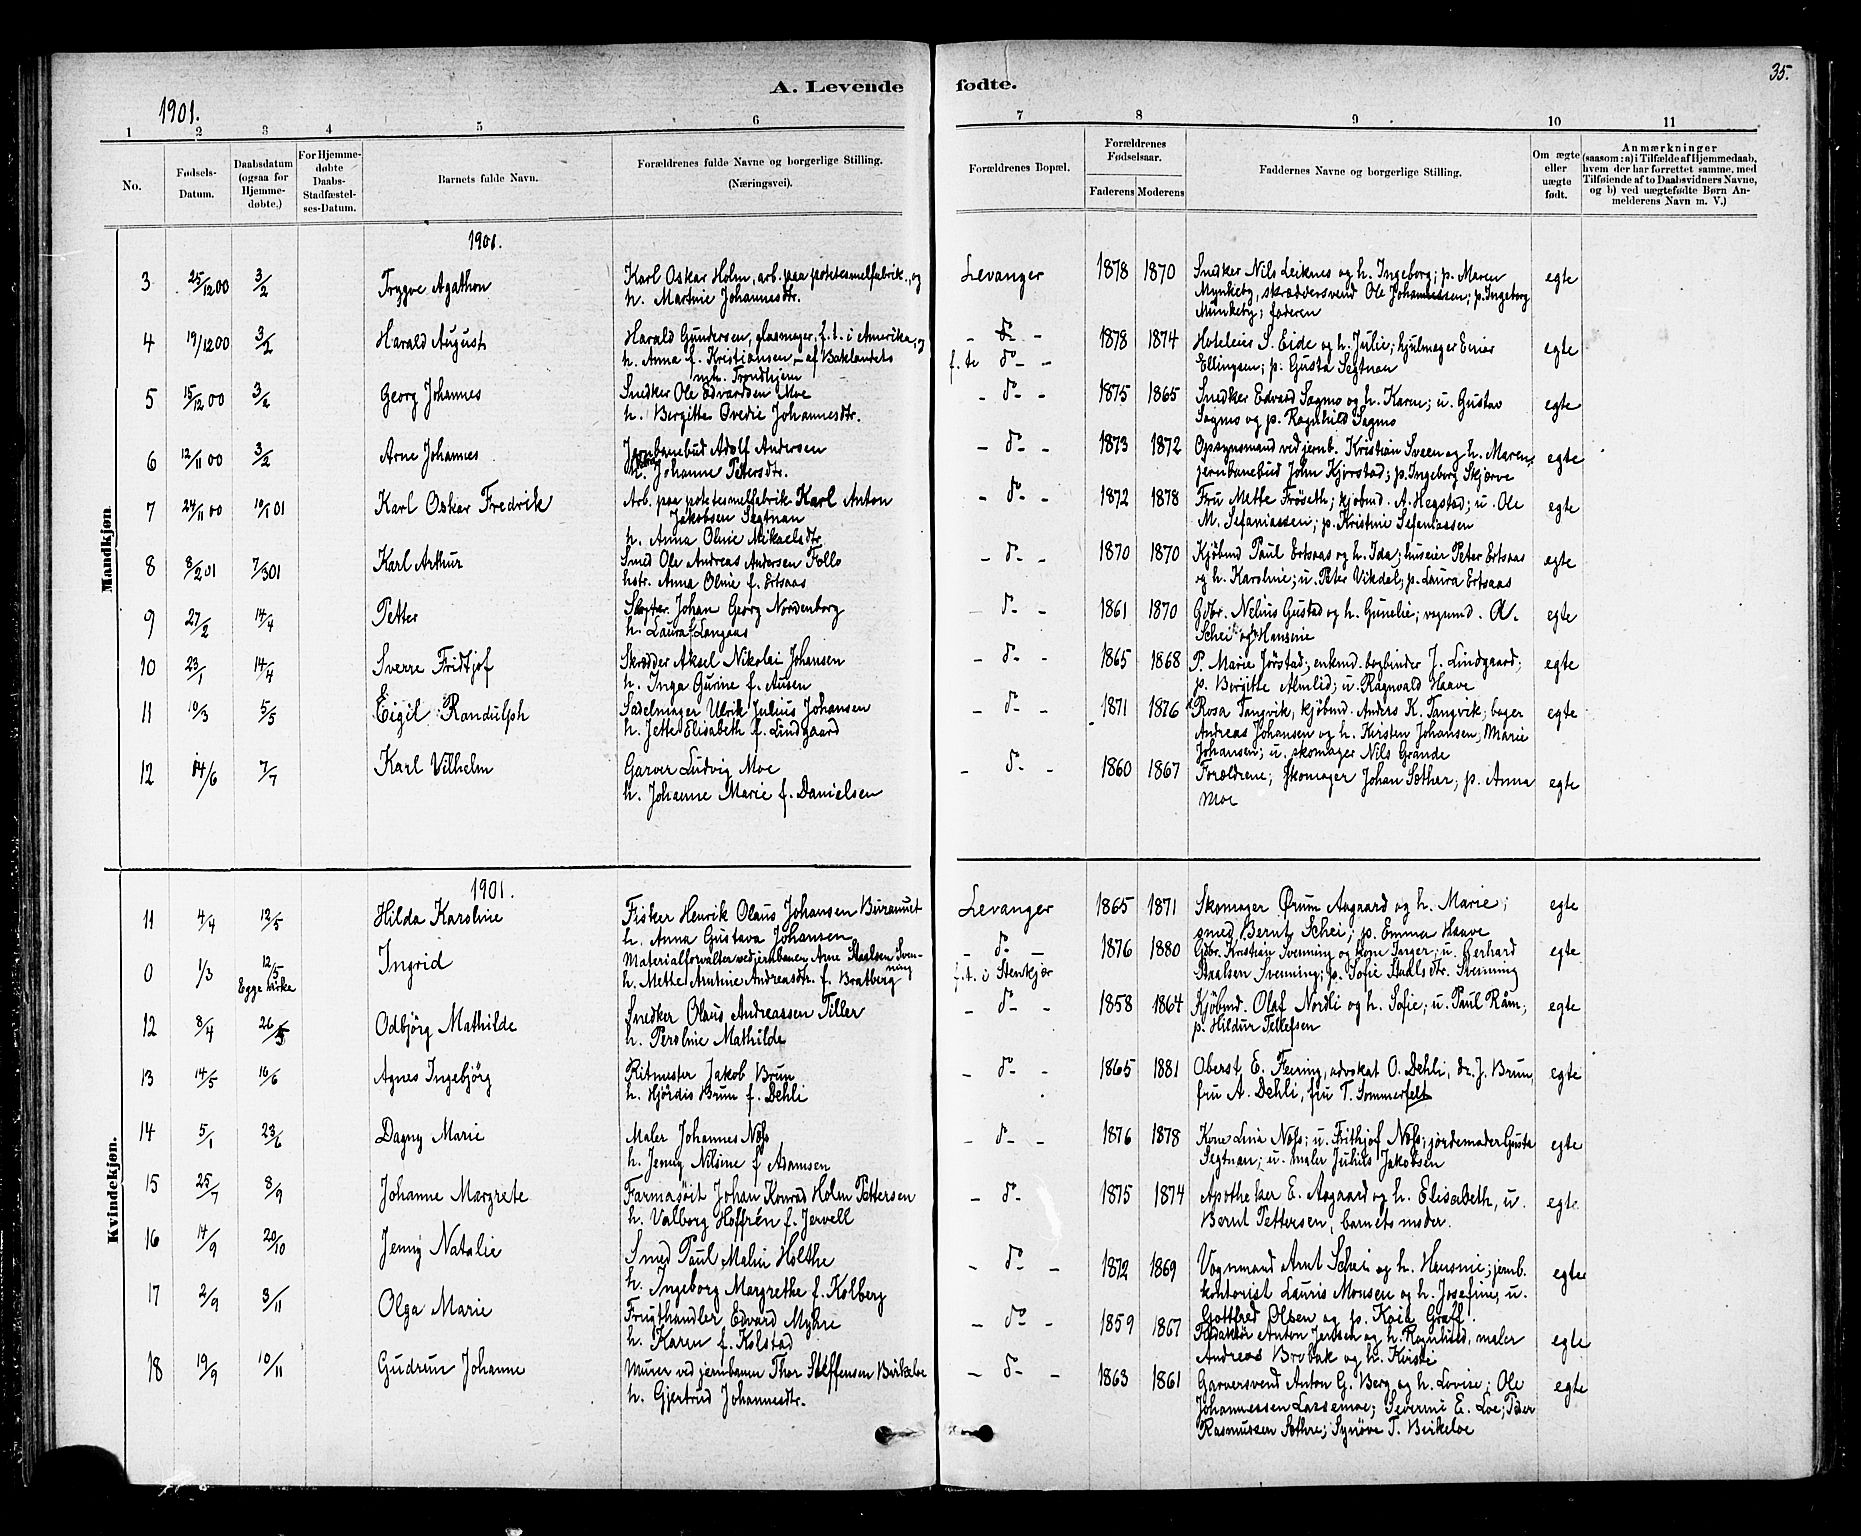 35.
A. Levende fødte.
1901.
1 2 3 4 5 6 7 8 9 10 11
No.
Fødsels-Datum.
Daabsdatum (ogsaa for Hjemme-døbte.)
For Hjemme-døbte Daabs-Stadfæstel-ses-Datum.
Barnets fulde Navn.
Forældrenes fulde Navne og borgerlige Stilling. (Næringsvei).
Forældrenes Bopæl.
Forældrenes Fødselsaar.
Faderens Moderens
Faddernes Navne og borgerlige Stilling.
Om ægte eller uægte født.
Anmærkninger
(saasom: a) i Tilfælde af Hjemmedaab,
hvem der har forrettet samme, med
Tilføiende af to Daabsvidners Navne,
og b) ved uægtefødte Børn An-
melderens Navn m. V.)
Mandkjøn
1901.
3 25/12 00 3/2 Trygve Agathon Karl Oskar Holm, arb. paa potetesmelfabrik., og Levanger 1878 1870 Snedker Nils Leiknes og h. Ingeborg; p. Maren egte
h. Martine Johannesdtr. Mynkeby, skræddersvend Ole Johannessen; p. Ingeborg
Munkeby; faderen
4 19/12 00 3/2 Harald August Harald Gundersen, glasmager, f. t. i Amerika, og - do - 1878 1874 Hoteleier S. Eide og h. Julie; hjulmager Einar egte
h. Anna f. Kristiansen, - af Baklandets f. te do - Ellingsen; p. Gusta Segtnan
mh. Trondhjem
5 15/12 00 3/2 Georg Johannes Snedker Ole Edvardsen Moe - do - 1875 1865 Snedker Edvard Sagmo og h. Karen; u. Gustav egte
h. Bergitte Ovedie Johannesdtr. Sagmo og p. Ragnhild Sagmo
6 12/11 00 3/2 Arne Johannes Jernbanebud Adolf Andersen - do - 1873 1872 Opsynsmand ved jernb. Kristian Sveen og h. Maren; egte
Johanne Petersdtr. jernbanebud John Kjørstad; p. Ingeborg Skjærve
7 24/11 00 10/1 01 Karl Oskar Fredrik Arb. paa potetesmelfabrik Karl Anton - do - 1872 1878 Fru Mette Frøseth; kjøbmd. A. Hegstad; u. Ole egte
Jakobsen Segtnan M. Sefaniassen; p. Kristine Sefaniassen
h. Anna Oline Mikaelsdtr
8 8/2 01 7/3 01 Karl Arthur Smed Ole Andreas Andersen Follo - do - 1870 1870 Kjøbmd Paul Ertsaas og h. Ida; huseier Peter Ertsaas egte
hstr. Anna Oline f. Ertsaas og h. Karoline; u. Peter Vikdal, p. Laura Ertsaas
9 27/2 14/4 Petter Johan Georg Nordenborg - do - 1861 1870 Gdbr. Nelius Gustad og h. Gunelie; vognmd. A. egte
h. Laura f. Langaas Schei og h. Hansine
10 23/1 14/4 Sverre Fridtjof Skrædder Aksel Nikolai Johansen - do - 1865 1868 P. Marie Jørstad; enkemd. bogbinder J. Lindgaard; egte
h. Inga Gurine f. Ausen p. Bergitte Almlid; u. Ragnvald Haave
11 10/3 5/5 Eigil Randulph Sadelmager Ulrik Julius Johansen - do - 1871 1876 Rosa Tangvik, kjøbmd. Anders K. Tangvik; bager egte
h. Jette Elisabeth f. Lindgaard Andreas Johansen og h. Kirsten Johansen; Marie
Johansen; u. skomager Nils Grande
12 14/6 7/7 Karl Vilhelm Garver Ludvig Moe - do - 1860 1867 Forældrene; skomager Johan Sother; p. Anna egte
h. Johanne Marie f. Danielsen Moe
Kvindekjøn.
1901.
11 4/4 12/5 Hilda Karoline Fisker Henrik Olaus Johansen Buranuet Levanger 1865 1871 Skomager Ørum Aagaard og h. Marie; egte
h. Anna Gustava Johansen smed Bernt Schei; p. Emma Haave
0 1/3 12/5 Ingrid Materialforvalter ved jernbanen Arne Staalsen Sven- - do - 1876 1880 Gdbr. Kristian Svenning og kone Inger; u. Gerhard egte
Egge kirke h. Mette Arntine Andreasdtr. f. Bratberg ning f. t. i Stenkjør Staalsen Svenning; p. Sofie Staalsdtr. Svenning
12 8/4 26/5 Odbjörg Mathilde Snedker Olaus Andreassen Tiller - do - 1858 1864 Kjøbmd. Olaf Nordli og h. Sofie; u. Paul Råm; egte
h. Peroline Mathilde p. Hildur Tellefsen
13 14/5 16/6 Agnes Ingebjörg Ritmester Jakob Brun - do - 1865 1881 Oberst E. Feiring, advokat O. Dehli, dr. J. Brun, egte
h. Hjördis Brun f. Dehli fru A. Dehli, fru T. Sommerfelt
14 5/1 23/6 Dagny Marie Maler Johannes Næss - do - 1876 1878 Kone Lina Næss; u. Frithjof Næss; jordemoder Gusta egte
h. Jenny Nilsine f. Adamsen Segtnan; u. maler Julius Jakobsen
15 25/7 8/9 Johanne Margrete Farmasöit Johan Konrad Holm Pettersen - do - 1875 1874 Apotheker E. Aagaard og h. Elisabeth, u. egte
h. Valborg Hoffrén f. Jervell Bernt Pettersen, barnets moder.
16 14/9 20/10 Jenny Natalie Smed Paul Malin Holthe - do - 1872 1869 Vognmand Arnt Schei og h. Hansine; jernb. egte
h. Ingeborg Margrethe f. Kolberg kontorist Lauris Monsen og h. Josefine, u.
Gottfred Olsen og p. Kaia Graff.
17 2/9 3/11 Olga Marie Frugthandler Edvard Myhre - do - 1859 1867 Redaktør Anton Jenssen og h. Ragnhild, maler egte
h. Karen f. Kolstad Andreas Brebak og h. Kirsti
18 19/9 10/11 Gudrun Johanne Murer ved jernbanen Thor Steffensen Birkeloe - do - 1863 1861 Garversvend Anton G. Berg og h. Lovise; Ole egte
h. Gjertrud Johannesdtr. Johannessen Lassemoe; Severine E. Loe; Peder
Rasmussen Sæthre; Synöve T. Birkeloe